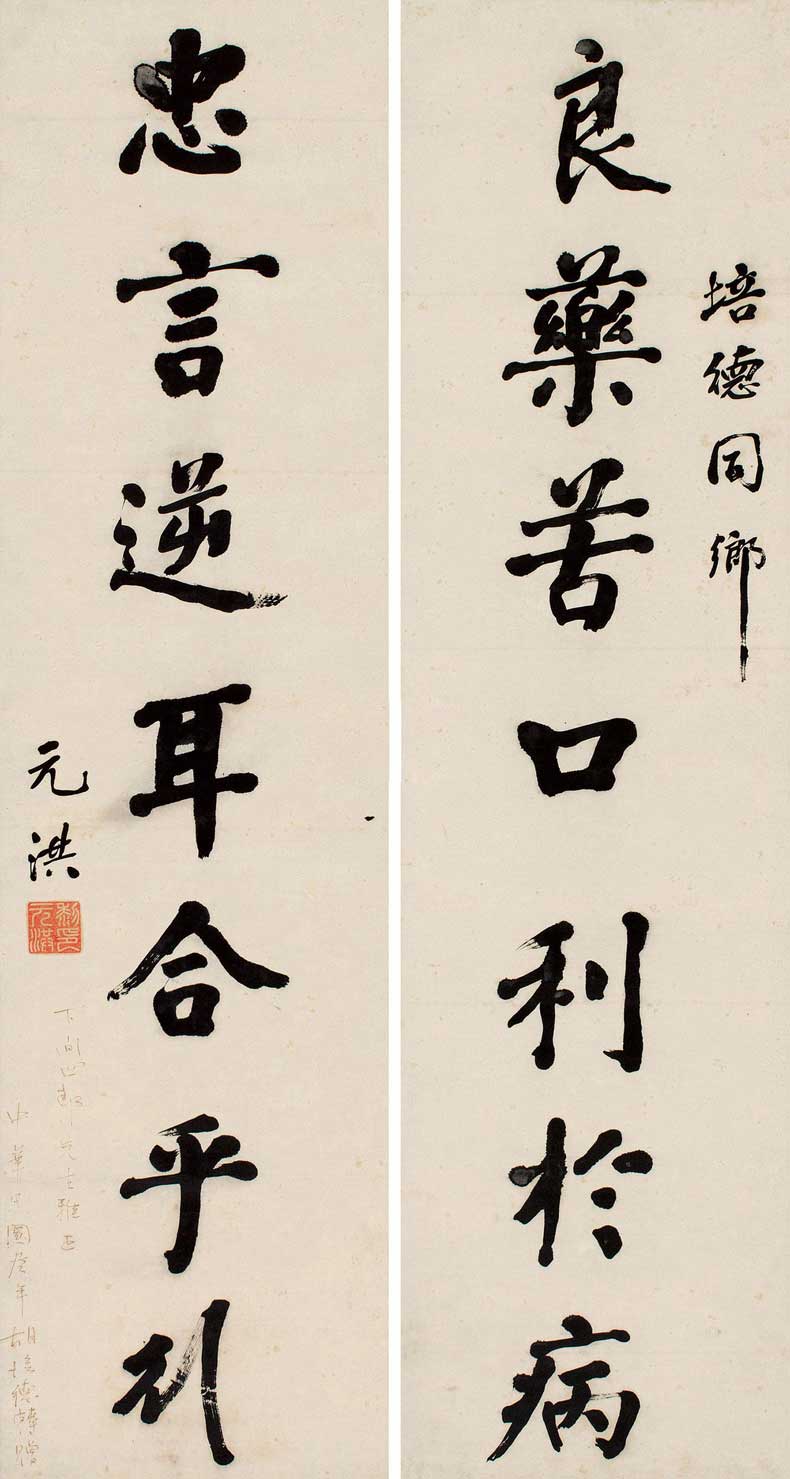 培德同鄉
良藥苦口利於病
忠言逆耳合乎行
元洪
黎印元洪
先生雅正
中華民國年胡培德轉贈